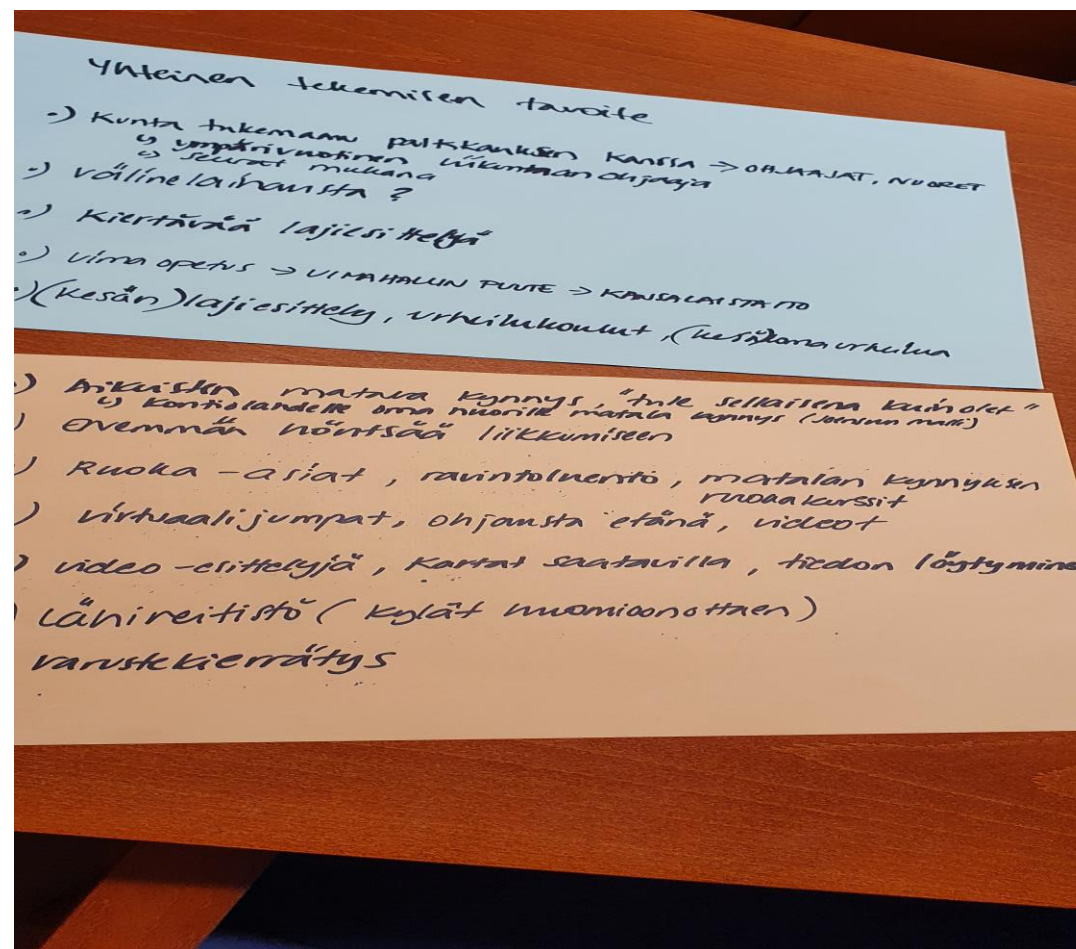 Yhteinen tekemisen tavoite
•) Kunta tukemaan palkkauksen kanssa → OHJAAJAT, NUORET
↳ ympärivuotinen liikunnan ohjaaja
↳ seurat mukana
•) välinelainausta ?
•) Kiertävää lajiesittelyä
•) Uima opetus → UIMAHALLIN PUUTE → KANSALAISTAITO
•) (Kesän) lajiesittely, urheilukoulut, (kesä)
•) Aikuisten matala kynnys, "tule sellaisena kuin olet"
↳ Kontiolahdelle oma nuorille matala kynnys (Joensuun malli)
) Enemmän höntsää liikkumiseen
) Ruoka-asiat, ravintoluento, matalan kynnyksen
ruokakurssit
) virtuaalijumpat, ohjausta etänä, videot
) video-esittelyjä, Kartat saatavilla, tiedon löytymine
) Lähireitistö (kylät huomioonottaen)
varustekierrätys